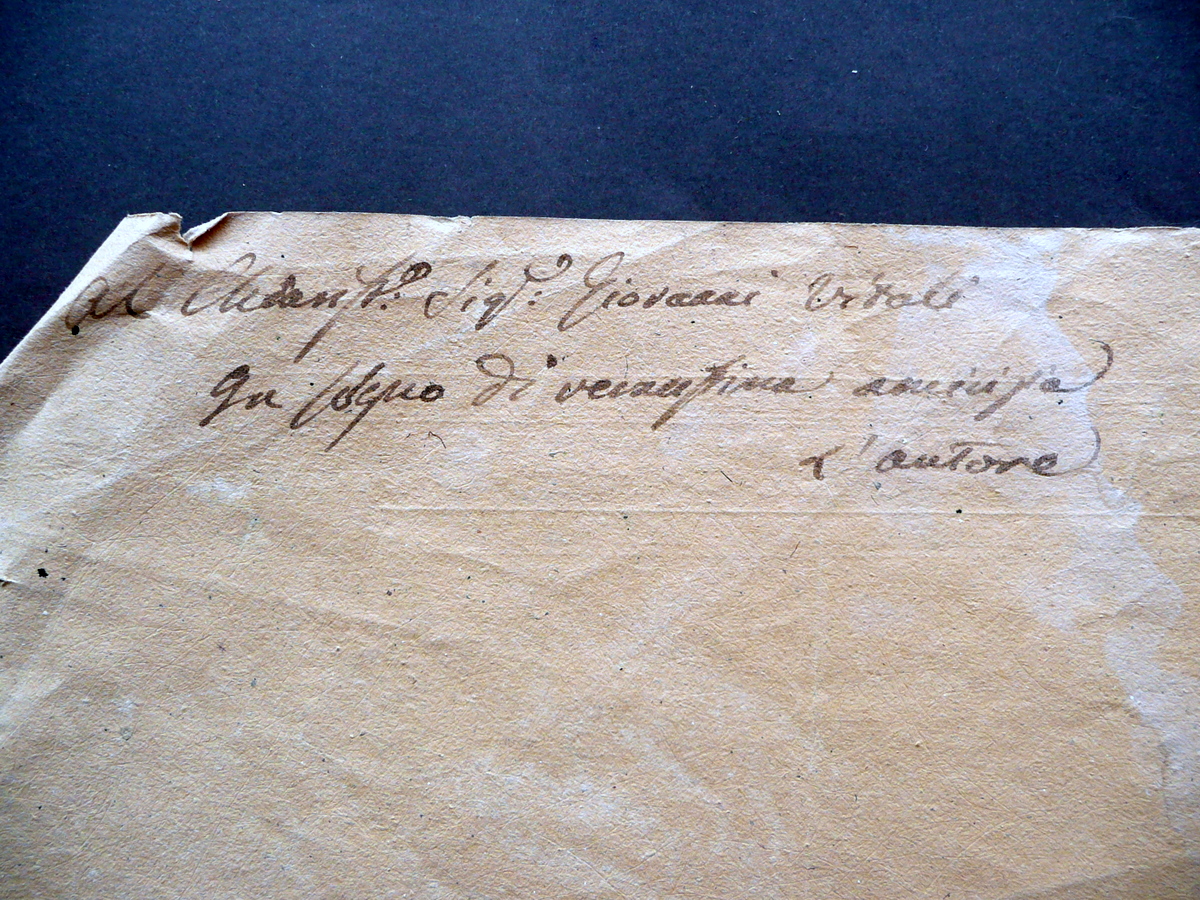 Al Sig.r Giovanni Vitali
In segno di verassima amicizia
L'autore